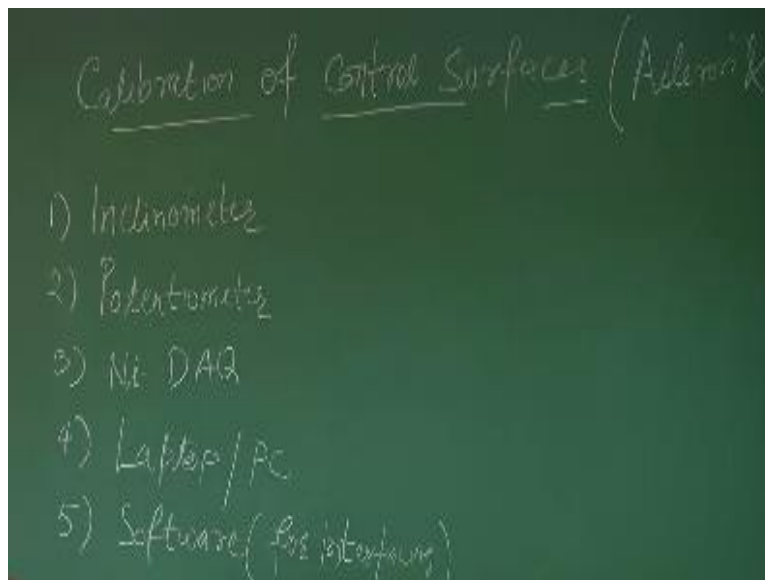 Calibration of Control Surfaces (Aileron
1) Inclinometer
2) Potentiometer
3) NI DAQ
4) Laptop/PC
5) Software (for interfacing)